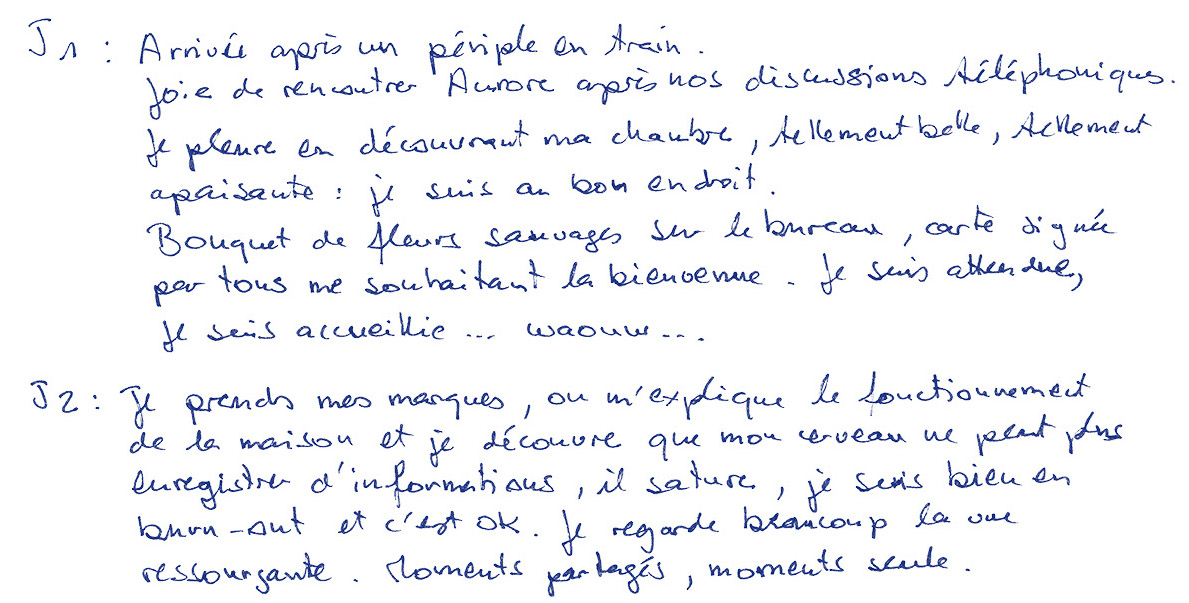 J1 : Arrivée après un périple en train.
Joie de rencontrer Aurore après nos discussions téléphoniques.
Je pleure en découvrant ma chambre, tellement belle, tellement
apaisante : je suis au bon endroit.
Bouquet de fleurs sauvages sur le bureau, carte signée
par tous me souhaitant la bienvenue. Je suis attendue,
je suis accueillie ... waouw ...
J2 : Je prends mes marques, on m'explique le fonctionnement
de la maison et je découvre que mon cerveau ne peut plus
enregistrer d'informations, il sature, je suis bien en
burn-out et c'est OK. Je regarde beaucoup la vue
ressourçante. Moments partagés, moments seule.